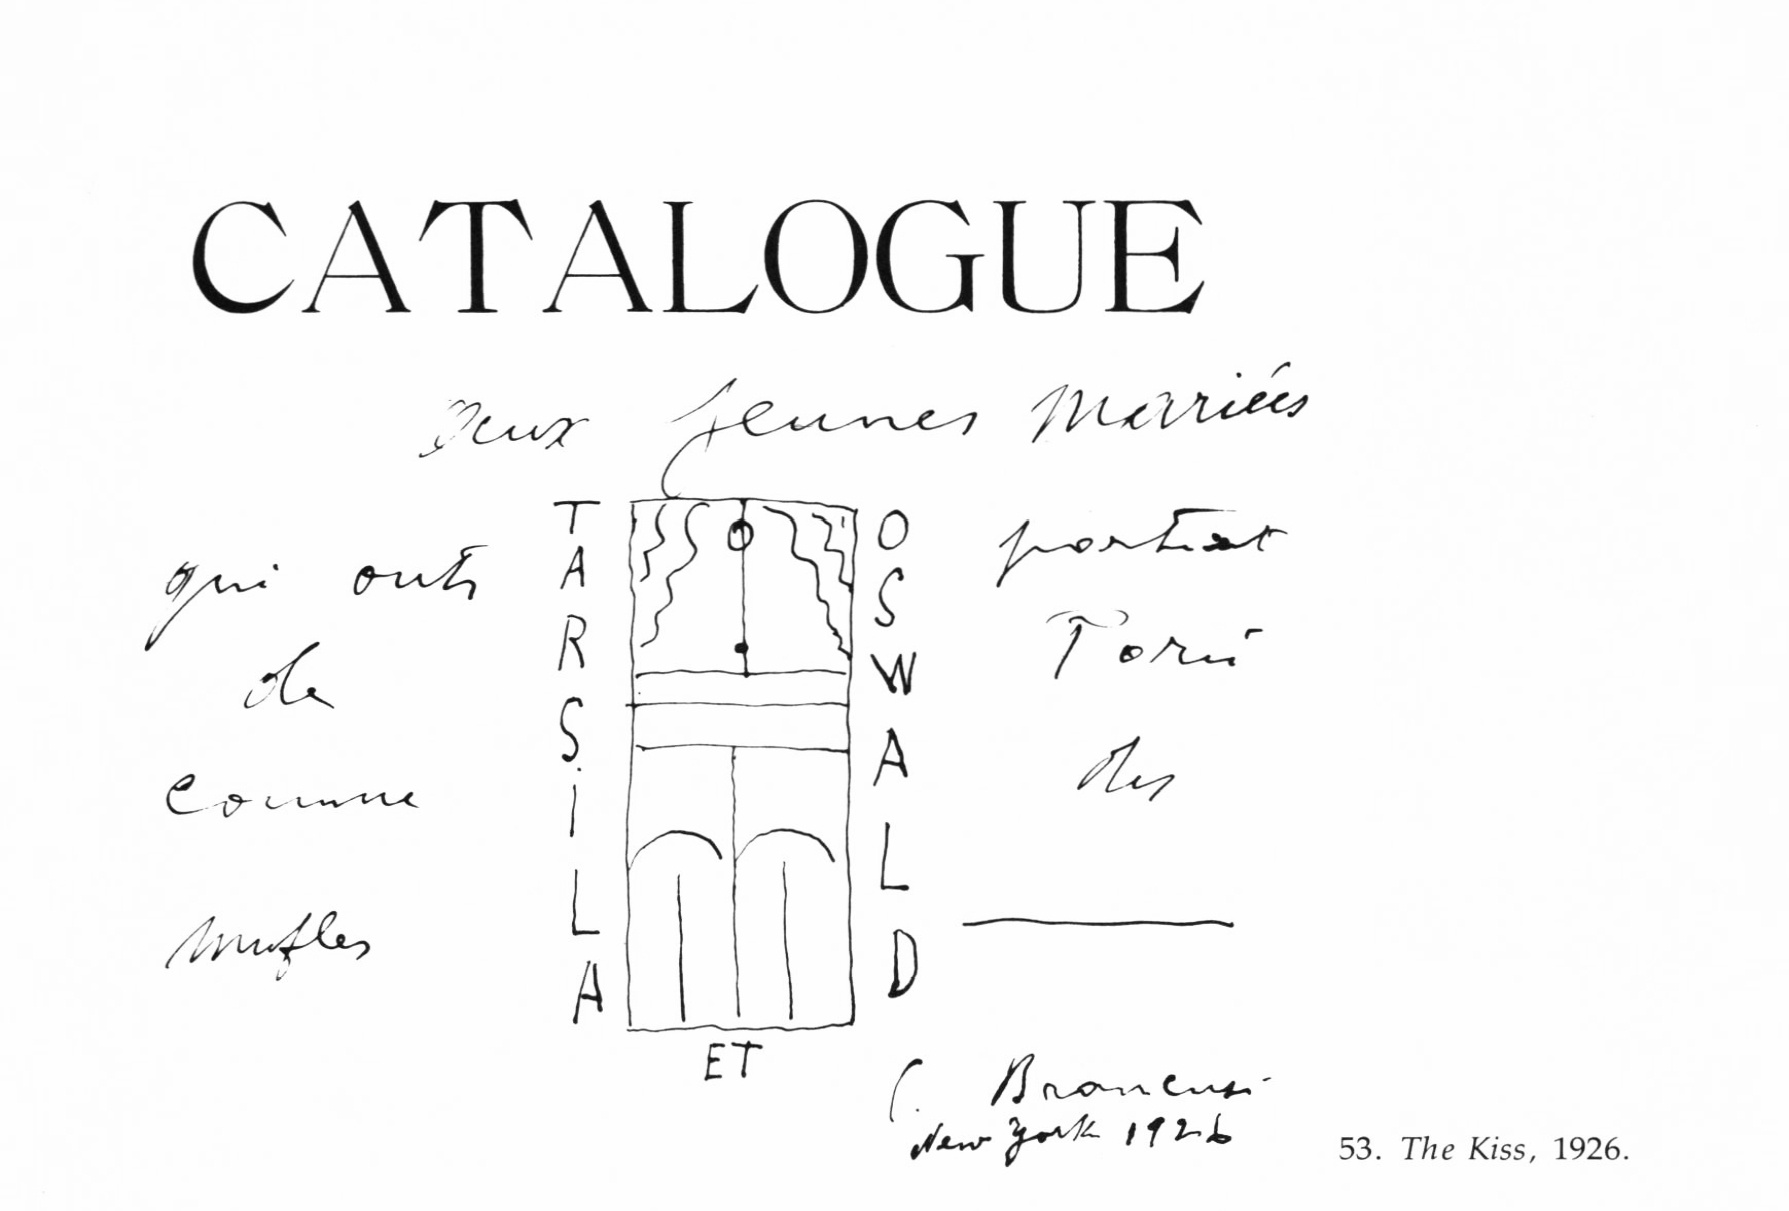 CATALOGUE
Deux jeunes Mariées
qui onts
de
comme des
mufles
TARSILA
ET
OSWALD
C. Brancusi
New York 1926
53. The Kiss, 1926.